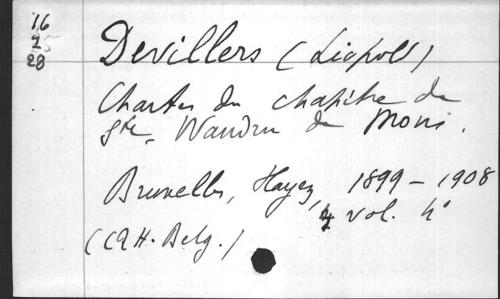 16
Devillers (Léopold)
28
Chartes du chapitre de
Ste. Waudru de Mons.
Bruxelles, Hayez, 1899-1908
4 vol. 4°
(CRH. Belg.)